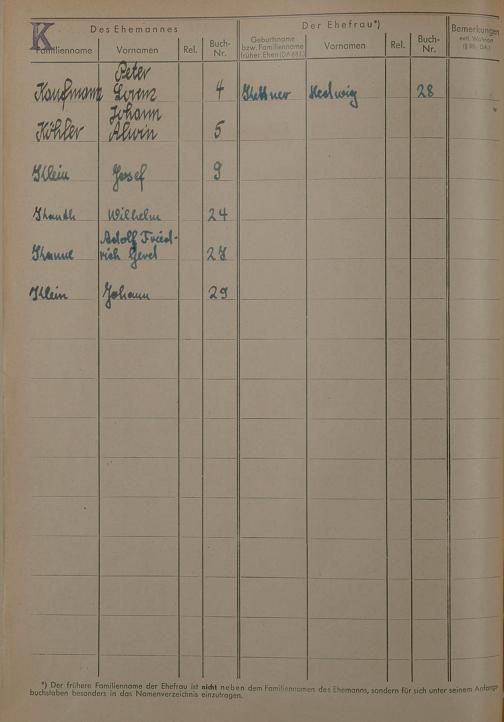 K
Des Ehemannes
Der Ehefrau*)
Bemerkungen
Familienname
Vornamen
Rel.
Buch-
Nr.
Geburtsname
bzw. Familienname
früher. Ehen
Vornamen
Rel.
Buch-
Nr.
Peter
Kaufmann Lorenz 4 Kettner Hedwig 28
Johann
Köhler Alwin 5
Klein Josef 9
Wilhelm 24
Adolf Fried-
rich 27
Klein Johann 29
*) Der frühere Familienname der Ehefrau ist nicht neben dem Familiennamen des Ehemanns, sondern für sich unter seinem Anfangs-
buchstaben besonders in das Namenverzeichnis einzutragen.